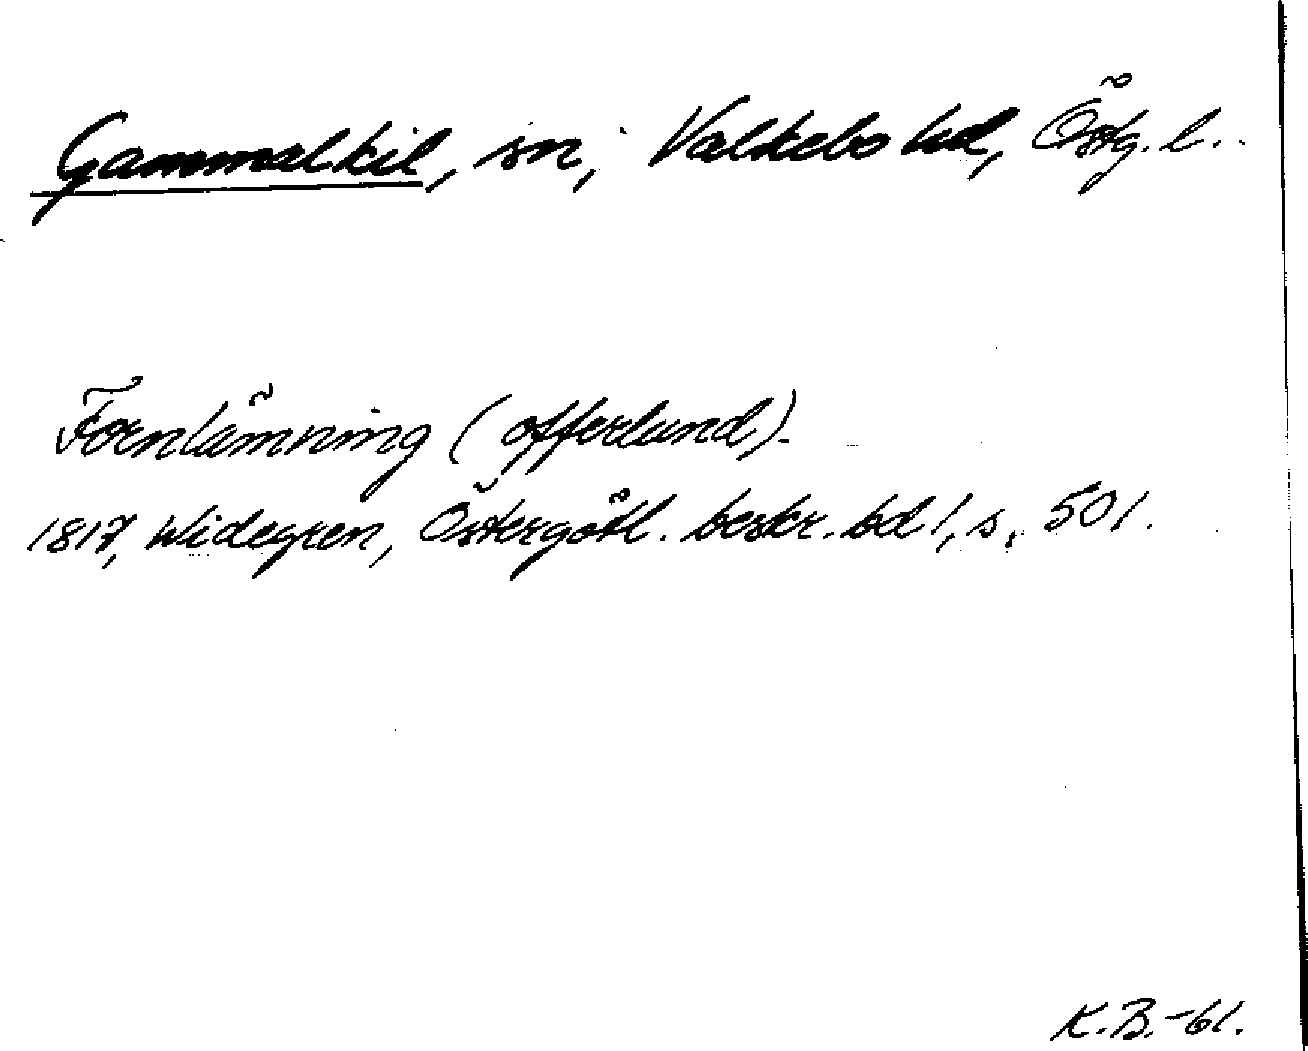 Gammalkil, sn, Valkebo hd, Östg. l.
Fornlämning (offerlund).
1817, Widegren, Östergötl. beskr. bd 1, s. 501.
K.B.-61.